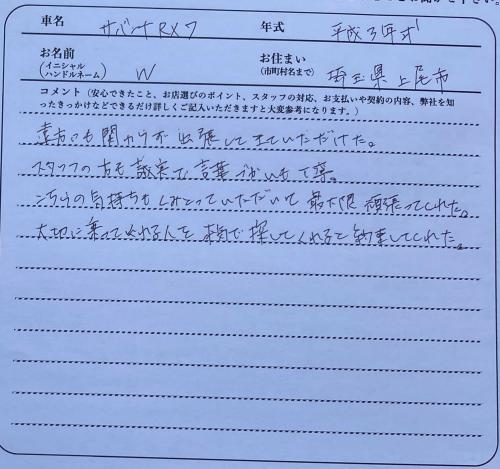 車名 サバンナRX7 年式 平成3年式
お名前 (イニシャル ハンドルネーム) W お住まい (市町村名まで) 埼玉県上尾市
コメント（安心できたこと、お店選びのポイント、スタッフの対応、お支払いや契約の内容、弊社を知
ったきっかけなどできるだけ詳しくご記入いただきますと大変参考になります。）
遠方にも関わらず出張して来ていただけた。
スタッフの方も誠実で言葉づかいも丁寧。
こちらの気持ちもくみとっていただいて最大限頑張ってくれた。
大切に乗ってくれる人を本気で探してくれると約束してくれた。